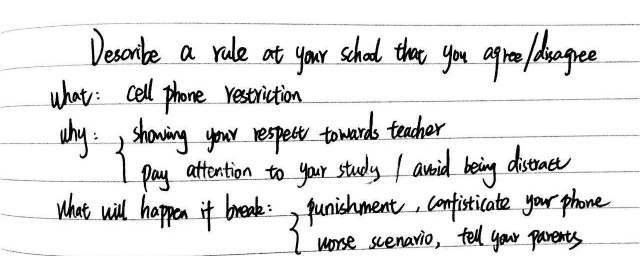 Describe a rule at your school that you agree/disagree
what: cell phone restriction
why: showing your respect towards teacher
pay attention to your study / avoid being distract
what will happen if break: punishment, confisticate your phone
worse scenario, tell your parents